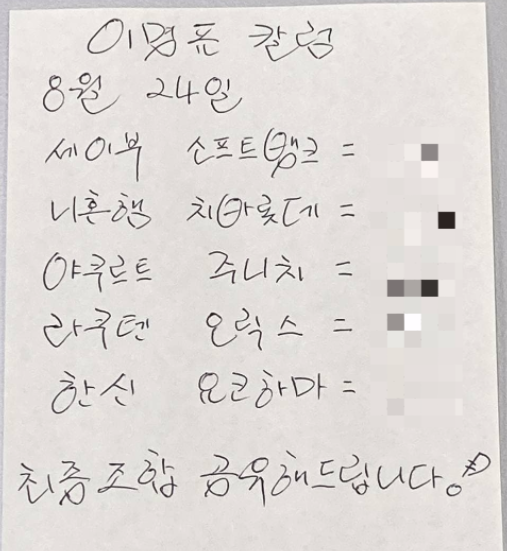 이명표 칼럼
8월 24일
세이부 소프트뱅크 =
니혼햄 치바롯데 =
야쿠르트 주니치 =
라쿠텐 오릭스 =
한신 요코하마 =
최종조합 공유해드립니다.